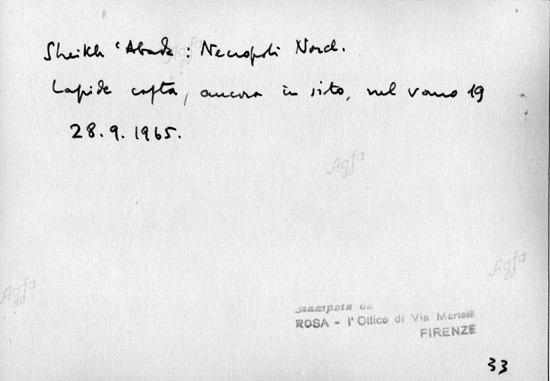 Sheikh 'Abada: Necropoli Nord.
Agfa
Lapide copta, ancora in sito, nel vano 19
28.9.1965.
Agfa
Agfa
Agfa
Stampata da
ROSA - l'Ottico di Via Martelli
FIRENZE
33